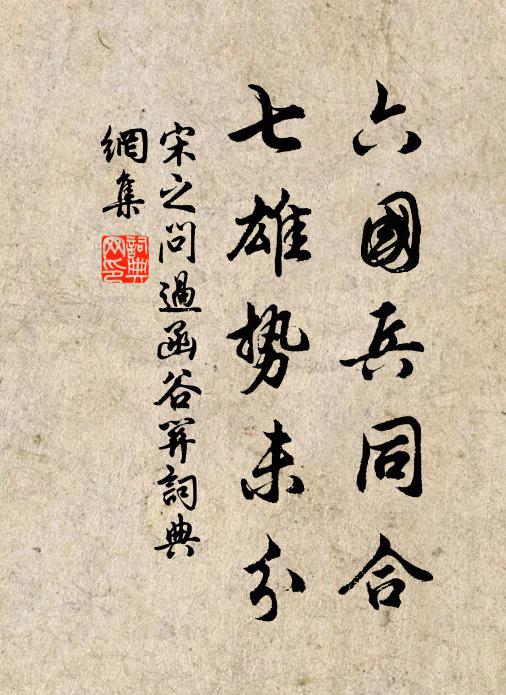 六國兵同合
七雄勢未分
宋之問過函谷关詞典
網集
詞典
网印